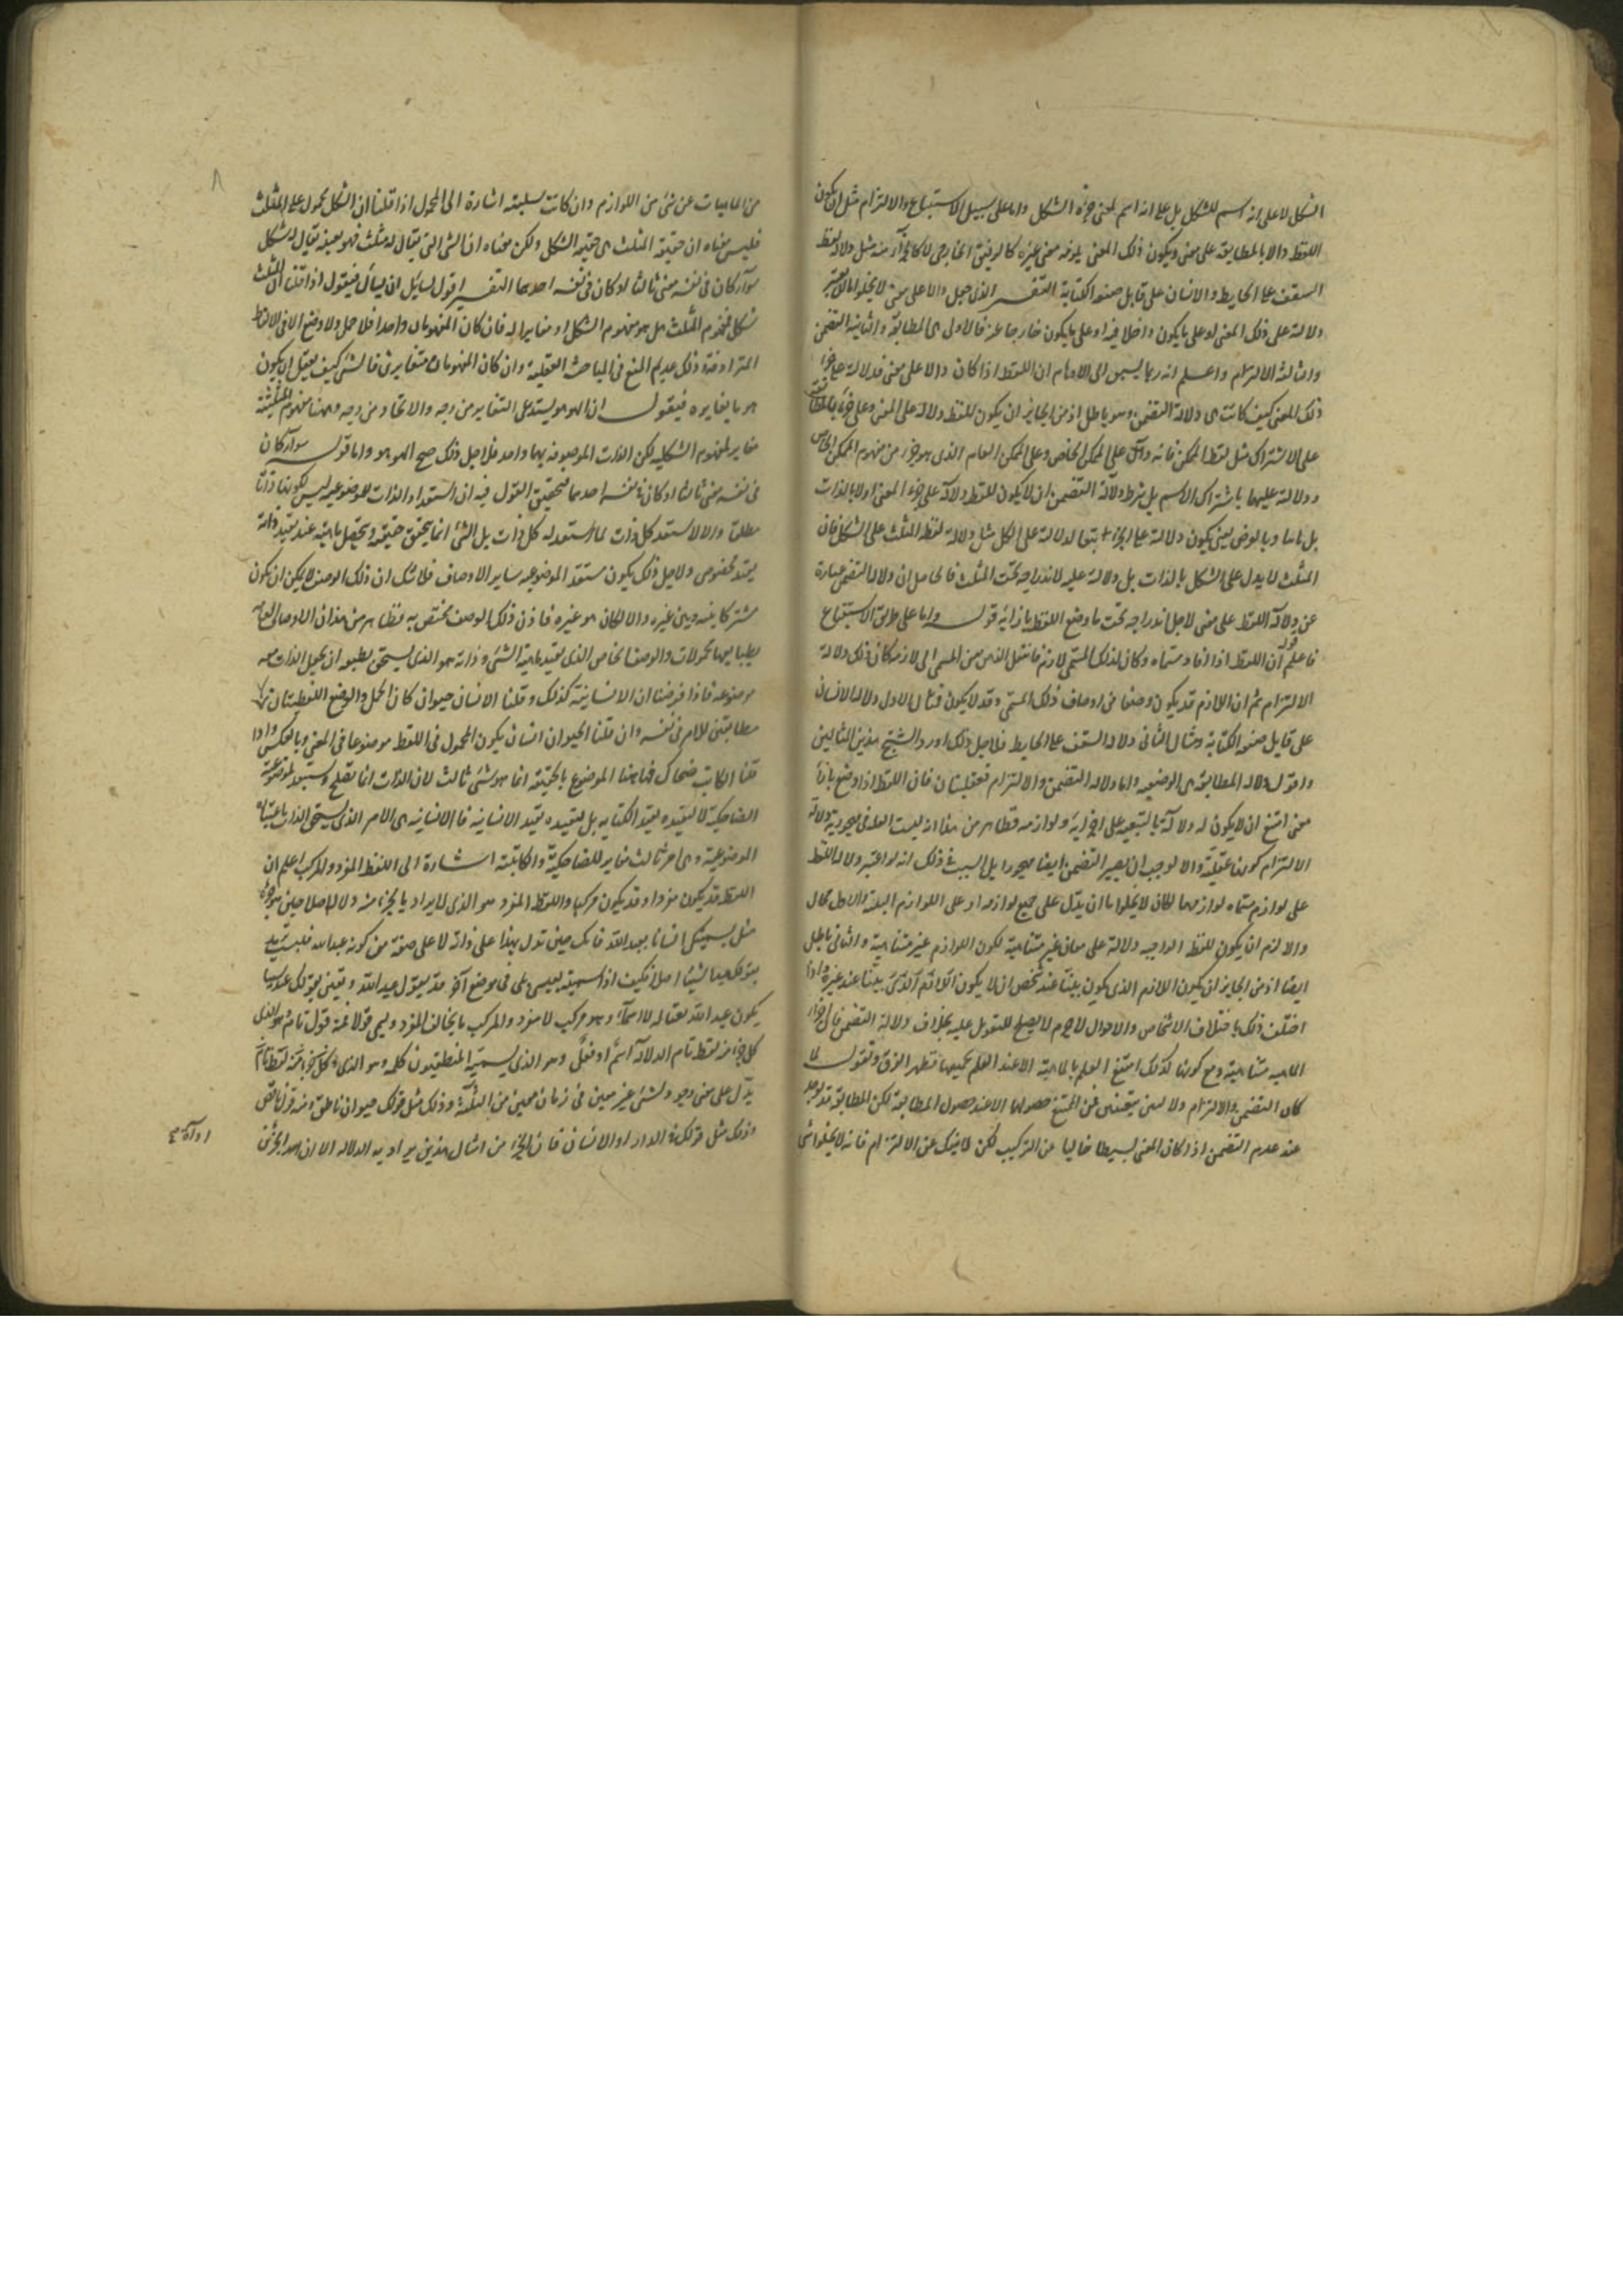 الشكل لا على انه اسم للشكل بل على انه اسم لمعنى جزؤه الشكل واما على سبيل الاستتباع والالتزام مثل ان يكون
اللفظ دالا بالمطابقة على معنى ويكون ذلك المعنى يلزمه معنى غيره كالرفيق الخارجى لا كالجزء منه مثل دلالة لفظ
السقف على الحايط والانسان على قابل صنعة الكتابة التفسير الذى جعل دالا على معنى لا يخلو اما ان يعتبر
دلالته على ذلك المعنى او على ما يكون داخلا فيه او على ما يكون خارجا عنه فالاولى هى المطابقة والثانية التضمن
والثالثة الالتزام واعلم انه ربما يسبق الى الاوهام ان اللفظ اذا كان دالا على معنى فدلالته على جزء
ذلك المعنى كيف كانت هى دلالة التضمن وهو باطل اذ من الجايز ان يكون للفظ دلالة على المعنى وعلى جزئه بالمطابقة
على الاشتراك مثل لفظ الممكن فانه دال على الممكن الخاص وعلى الممكن العام الذى هو جزء من مفهوم الممكن الخاص
ودلالته عليهما باشتراك الاسم بل شرط دلالة التضمن ان لا يكون للفظ دلالة على جزء المعنى اولا بالذات
بل ثانيا وبالعرض يعنى يكون دلالته على الجزء بتبع الدلالة على الكل مثل دلالة لفظ المثلث على الشكل فان
المثلث لا يدل على الشكل بالذات بل دلالته عليه لاندراجه تحت المثلث فالحاصل ان دلالة التضمن عبارة
عن دلالة اللفظ على معنى لاجل اندراجه تحت ما وضع اللفظ بازائه قوله واما على طريق الاستتباع
فاعلم ان اللفظ اذا افاد مسماه وكان لذلك المسمى لازم فانتقل الذهن من المسمى الى لازمه كان ذلك دلالة
الالتزام ثم ان اللازم قد يكون وصفا من اوصاف ذلك المسمى وقد لا يكون فمثال الاول دلالة الانسان
على قابل صنعة الكتابة ومثال الثانى دلالة السقف على الحايط فلاجل ذلك اورد الشيخ هذين المثالين
واقول دلالة المطابقة هى الوضعية واما دلالة التضمن والالتزام فعقليتان فان اللفظ اذا وضع بازاء
معنى امتنع ان لا يكون له دلالة بالتبعية على اجزائه ولوازمه فظاهر من هذا انه ليست العلة فى مهجورية دلالة
الالتزام كونها عقلية والا لوجب ان يصير التضمن ايضا مهجورا بل السبب فى ذلك انه لو اعتبر دلالة اللفظ
على لوازم مسماه لوازمها لكان لا يخلو اما ان يدل على جميع لوازمه او على اللوازم البينة والاول محال
والا لزم ان يكون للفظ الواحد دلالة على معان غير متناهية لكون اللوازم غير متناهية والثانى باطل
ايضا اذ من الجايز ان يكون اللازم الذى يكون بينا عند شخص ان لا يكون بينا عند غيره واذا
اختلف ذلك باختلاف الاشخاص والاحوال لا جرم لا يصلح للتعويل عليه بخلاف دلالة التضمن فان اجزاء
الماهية متناهية ومع كونها كذلك امتنع العلم بالماهية الا عند العلم بجميعها فظهر الفرق ونقول لما
كان التضمن والالتزام دلالتين تبعيتين فمن الممتنع حصولهما الا عند حصول المطابقة لكن المطابقة قد توجد
عند عدم التضمن اذا كان المعنى بسيطا خاليا عن التركيب لكن لا ينفك عن الالتزام فانه لا يخلو شى
٨
من الماهيات عن شئ من اللوازم وان كانت سلبية اشارة الى المحمول اذا قلنا ان الشكل محمول على المثلث
فليس معناه ان حقيقة المثلث هى حقيقة الشكل ولكن معناه ان الشئ الذى يقال له مثلث فهو بعينه يقال له شكل
سواء كان فى نفسه معنى ثالثا او كان فى نفسه احدهما التفسير اقول لسايل ان يسأل فيقول اذا قلنا ان المثلث
شكل فمفهوم المثلث هل هو مفهوم الشكل او مغايرا له فان كان المفهومان واحدا فلا حمل ولا وضع الا فى الالفاظ
المترادفة وذلك عديم النفع فى المباحث العقلية وان كان المفهومان متغايرين فالشئ كيف يعقل ان يكون
هو ما يغايره فيقول ان الهوهو يستدعى التغاير من وجه والاتحاد من وجه وههنا مفهوم المثلثية
مغاير لمفهوم الشكلية لكن الذات الموصوفة بهما واحد فلاجل ذلك صح الهوهو واما قوله سواء كان
فى نفسه معنى ثالثا او كان فى نفسه احدهما فتحقيق القول فيه ان استعداد الذات للموضوعية ليس لكونها ذاتا
مطلقا والا لاستعد كل ذات لما استعد له كل ذات بل الشئ انما يتحقق حقيقته ويتحصل ماهيته عند تقيد ذاته
بقيد مخصوص ولاجل ذلك يكون مستعد الموضوعية ساير الاوصاف فلا شك ان ذلك الوصف لا يمكن ان يكون
مشتركا بينه وبين غيره والا لكان هو غيره فاذن ذلك الوصف مختص به فظاهر من هذا ان الاوصاف العامة
بطباعها محمولات والوصف الخاص الذى يقيد ماهية الشئ وذاته هو الذى يستحق بطبعه ان يجعل الذات معه
موضوعة فاذا فرضنا ان الانسانية كذلك وقلنا الانسان حيوان كان الحمل والوضع اللفظيتان
مطابقتين للامر فى نفسه وان قلنا الحيوان انسان يكون المحمول فى اللفظ موضوعا فى المعنى وبالعكس واذا
قلنا الكاتب ضحاك فهاهنا الموضوع بالحقيقة انما هو شئ ثالث لان الذات انما تصلح وتستعد لموضوعية
الضاحكية لا لتقيده بقيد الكتابة بل لتقيده بقيد الانسانية فالانسانية هى الامر الذى يستحق الذات باعتباره
الموضوعية وهى امر ثالث مغاير للضاحكية والكاتبية اشارة الى اللفظ المفرد والمركب اعلم ان
اللفظ قد يكون مفردا وقد يكون مركبا واللفظ المفرد هو الذى لا يراد بالجزء منه دلالة اصلا حين هو جزؤه
مثل تسميتك انسانا بعبد الله فانك حين تدل بهذا على ذاته لا على صفته من كونه عبد الله فلست تريد
بقولك عبد شيئا اصلا فكيف اذا سميته بعيسى بلى فى موضع آخر قد تقول عبد الله وتعنى بقولك عبد شيئا
يكون عبد الله نعتا له لا اسما وهو مركب لا مفرد والمركب ما يخالف المفرد ويسمى قولا فمنه قول تام وهو الذى
كل جزء منه لفظ تام الدلالة اسم او فعل وهو الذى يسميه المنطقيون كلمة وهو الذى
يدل على معنى موجود لشئ غير معين فى زمان معين من الثلثة وذلك مثل قولك حيوان ناطق ومنه قول ناقص
وذلك مثل قولك فى الدار او لا انسان فان الجزء من امثال هذين يراد به الدلالة الا ان احد الجزئين
اداة